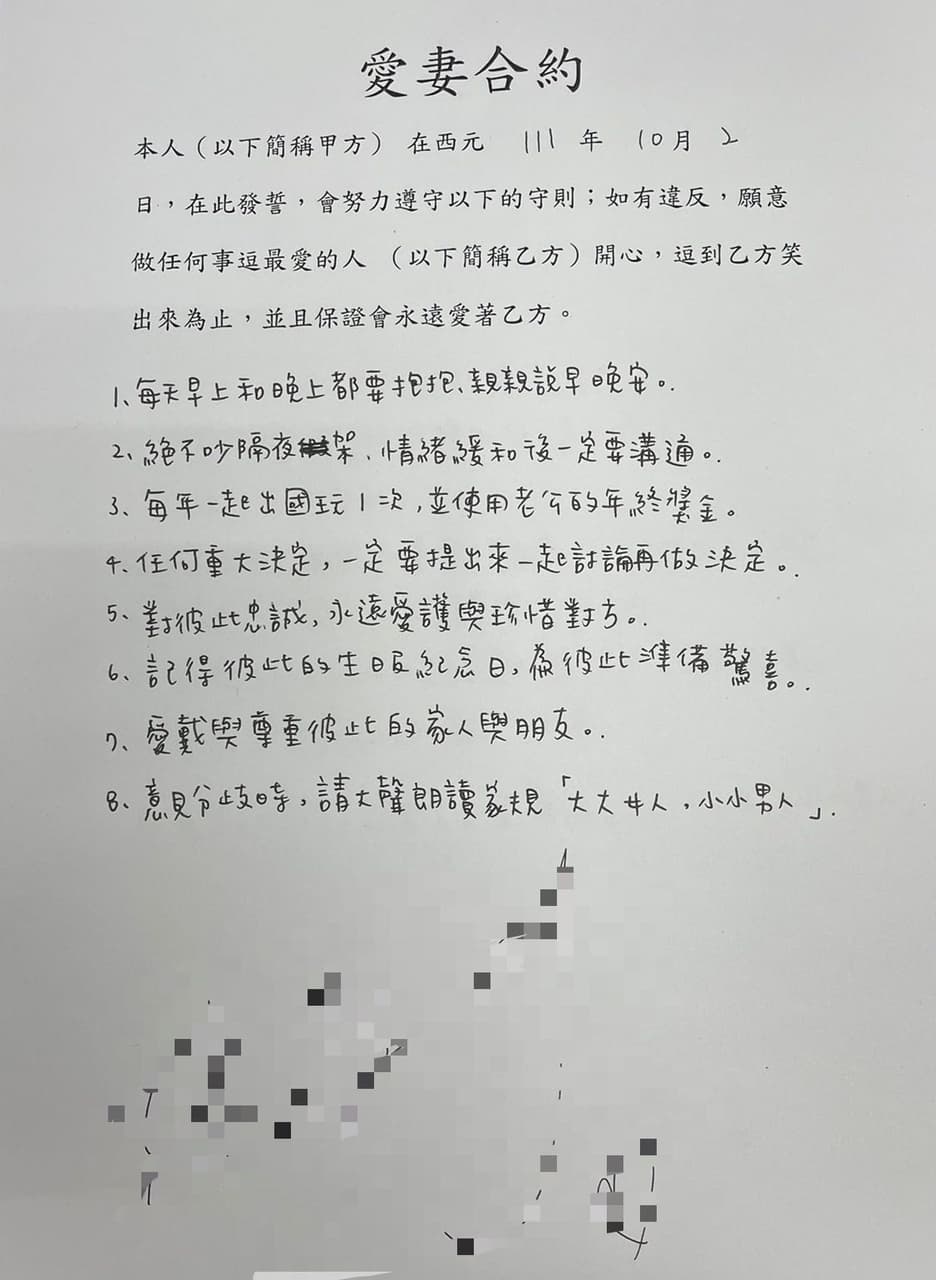 愛妻合約
本人（以下簡稱甲方） 在西元 111 年 10月 2
日，在此發誓，會努力遵守以下的守則；如有違反，願意
做任何事逗最愛的人 （以下簡稱乙方）開心，逗到乙方笑
出來為止，並且保證會永遠愛著乙方。
1、每天早上和晚上都要抱抱、親親說早晚安。
2、絕不吵隔夜架、情緒緩和後一定要溝通。
3、每年一起出國玩1次，並使用老公的年終獎金。
4、任何重大決定，一定要提出來一起討論再做決定。
5、對彼此忠誠，永遠愛護與珍惜對方。
6、記得彼此的生日及紀念日，為彼此準備驚喜。
7、愛戴與尊重彼此的家人與朋友。
8、意見分歧時，請大聲朗讀家規「大大女人，小小男人」.